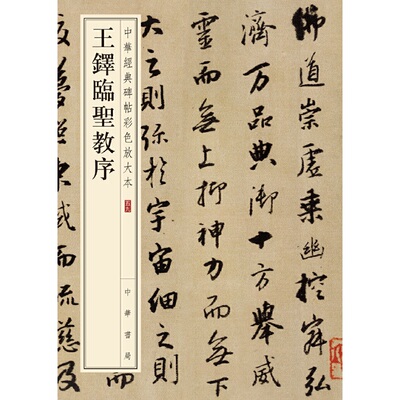 佛道崇虛乘幽控寂弘
濟萬品典御十方舉威
靈而無上抑神力而無下
大之則彌於宇宙細之則
中華經典碑帖彩色放大本
中華書局
王鐸臨聖教序
皎夢照東域而流慈及